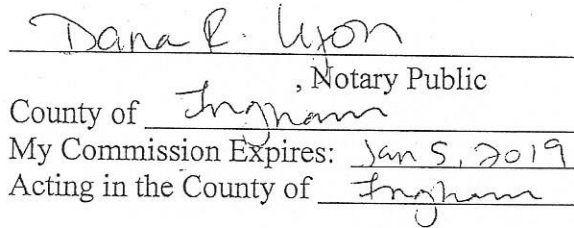 Dana R.
, Notary Public
County of Ingham
My Commission Expires: Jan 5, 2019
Acting in the County of Ingham